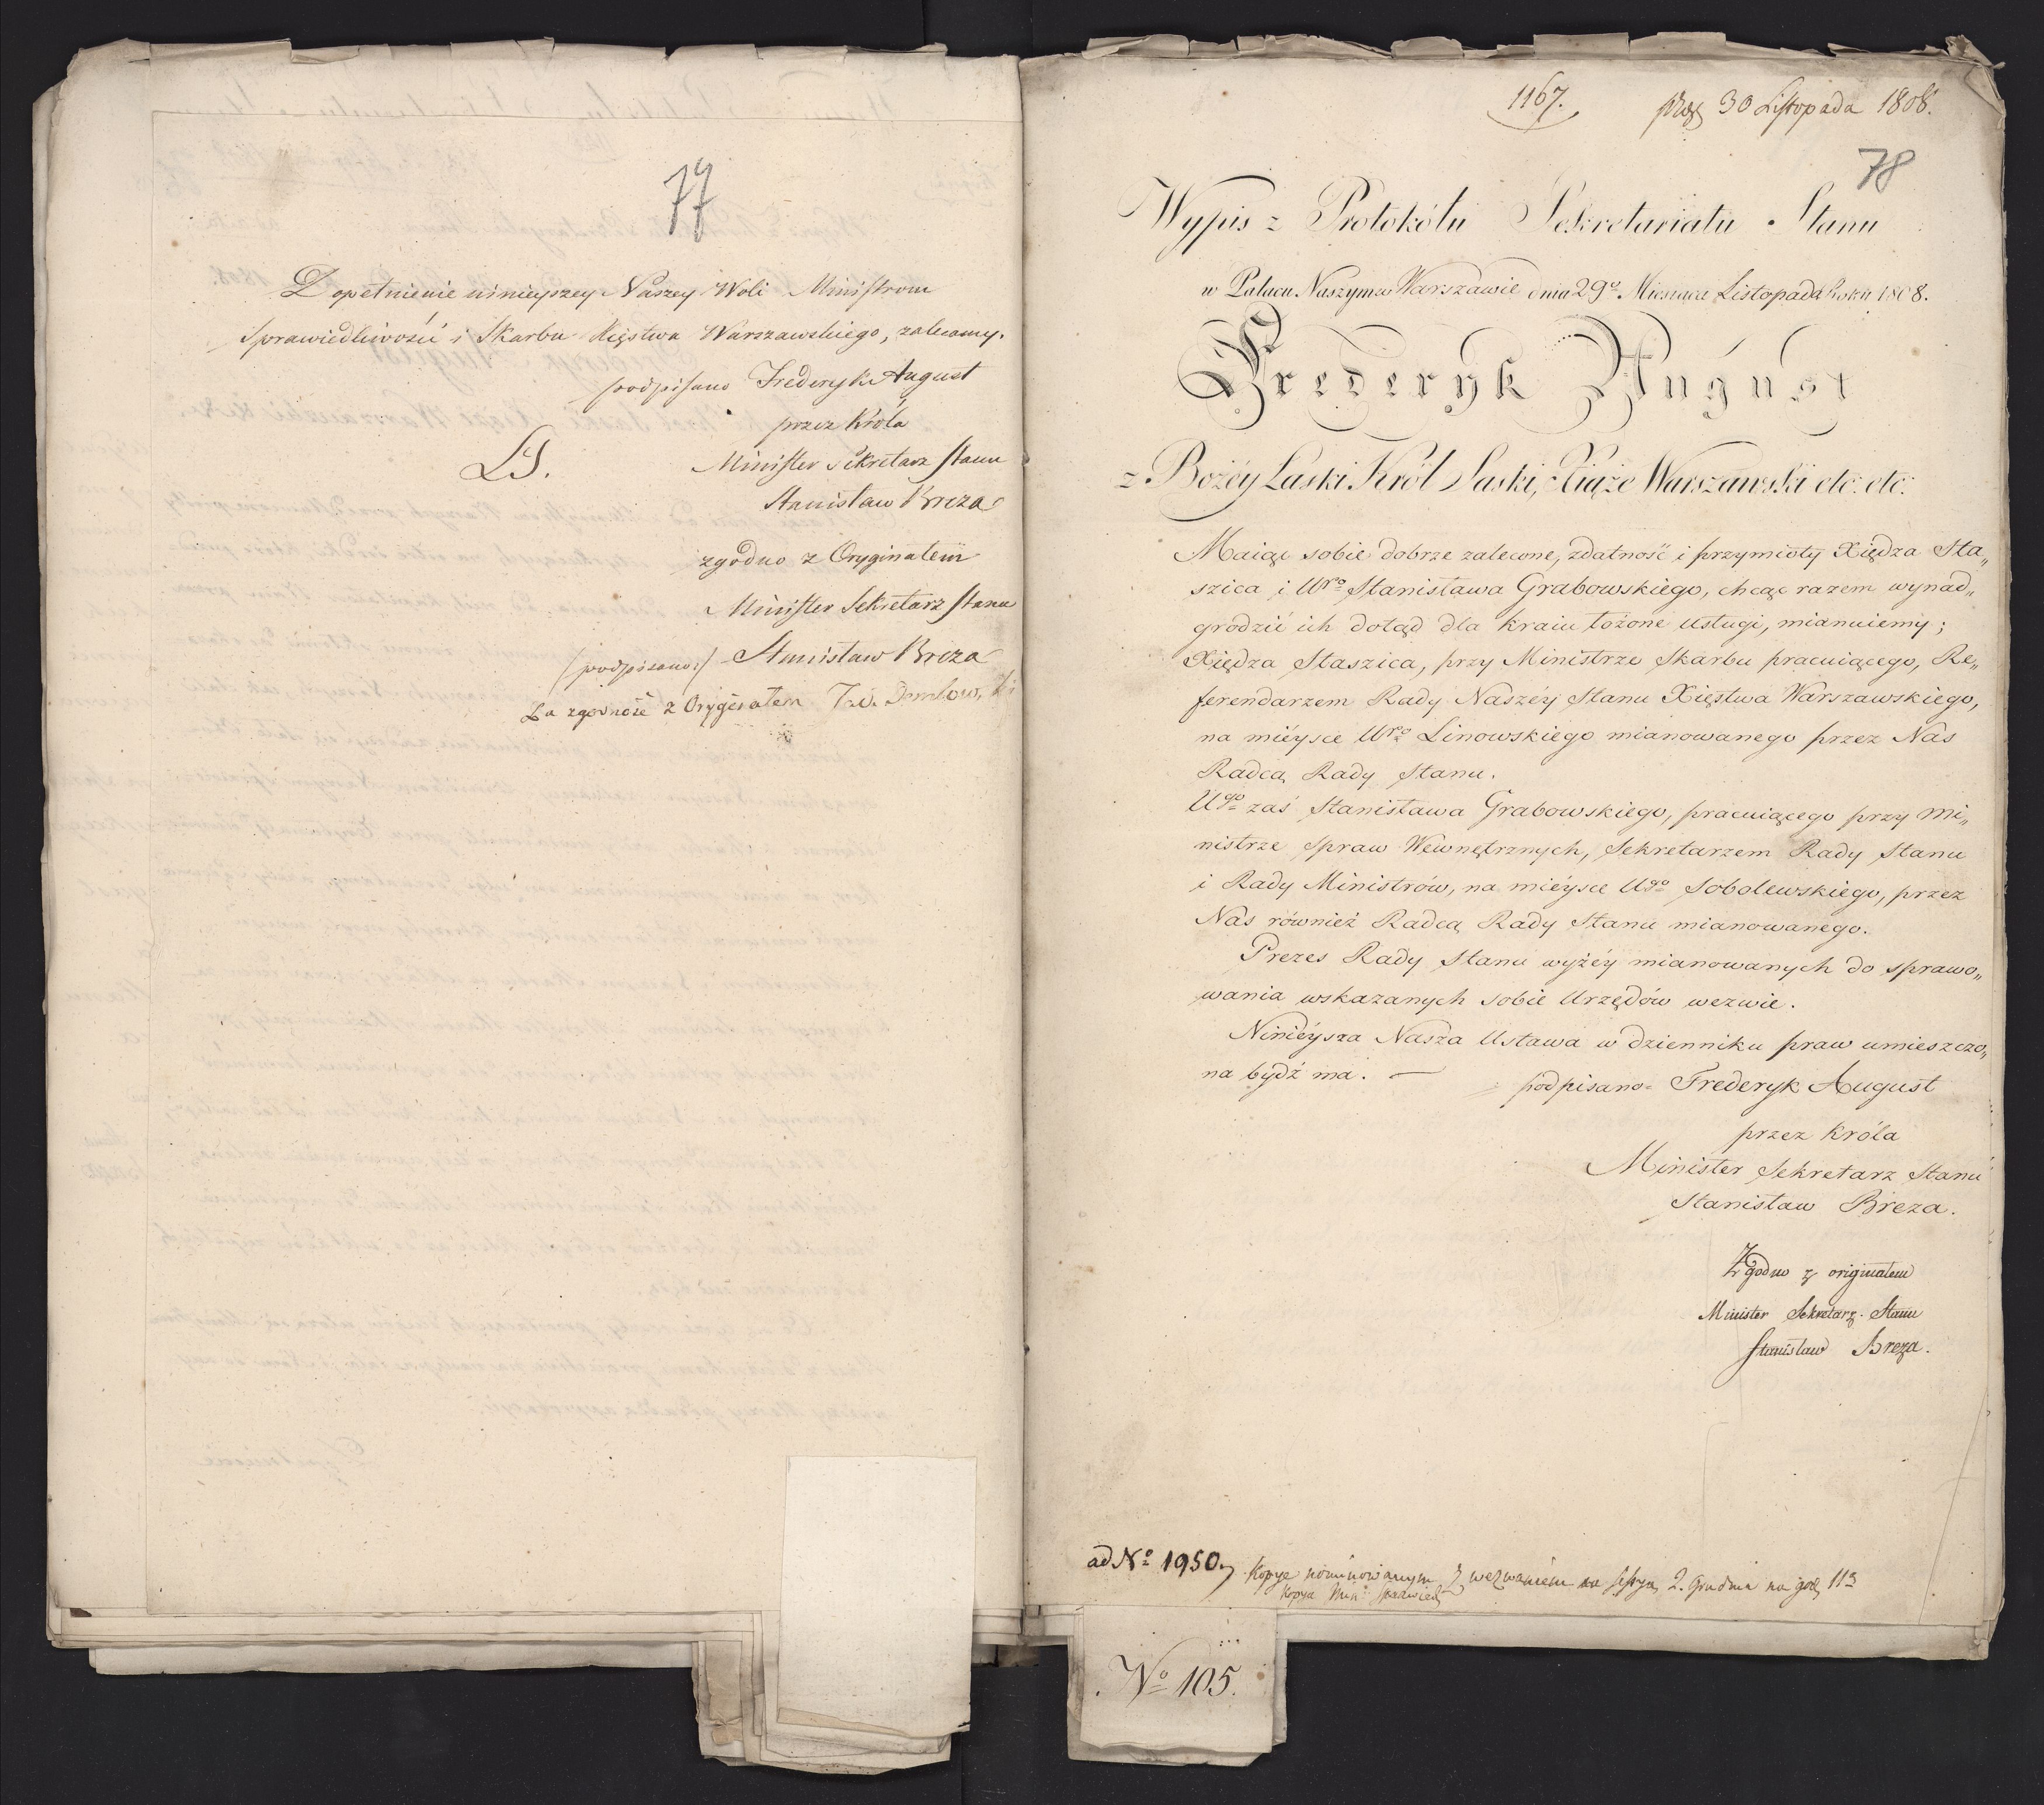 77
Dopełnienie ninieyszey Naszey Woli Ministrom
Sprawiedliwości i Skarbu Xięstwa Warszawskiego, zalecamy.
podpisano Frederyk August
przez Króla
LS.
Minister Sekretarz Stanu
Stanisław Breza
zgodno z Oryginałem
Minister Sekretarz Stanu
(podpisano:) Stanisław Breza
Za zgodność z Oryginałem
1167.
30 Listopada 1808.
78
Wypis z Protokółu Sekretariatu Stanu
w Pałacu Naszym w Warszawie dnia 29º Miesiąca Listopada Roku 1808.
Frederyk August
z Bożéy Łaski Król Saski, Xiąże Warszawski etc: etc:
Maiąc sobie dobrze zalecone, zdatność i przymioty Xiędza Sta„
szica i Urº Stanisława Grabowskiego, chcąc razem wynad„
grodzić ich dotąd dla kraiu łożone usługi, mianuiemy;
Xiędza Staszica, przy Ministrze Skarbu pracuiącego, Re„
ferendarzem Rady Naszéy Stanu Xięstwa Warszawskiego,
na miéysce Urº Linowskiego mianowanego przez Nas
Radcą Rady Stanu.
Ugº zaś Stanisława Grabowskiego, pracuiącego przy Mi„
nistrze Spraw Wewnętrznych, Sekretarzem Rady Stanu
i Rady Ministrów, na miéysce Ugº Sobolewskiego, przez
Nas również Radcą Rady Stanu mianowanego.
Prezes Rady Stanu wyżéy mianowanych do sprawo„
wania wskazanych sobie Urzędów wezwie.
Niniéysza Nasza Ustawa w dzienniku praw umieszczo„
na bydź ma. —
podpisano: Frederyk August
przez Króla
Minister Sekretarz Stanu
Stanisław Breza.
Zgodno z originałem
Minister Sekretarz Stanu
Stanisław Breza.
ad Nº 1950.
Kopye nominowanym z wezwaniem na sessyą 2. Grudnia na godz 11ą
Kopya Min: Sprawied
Nº 105.